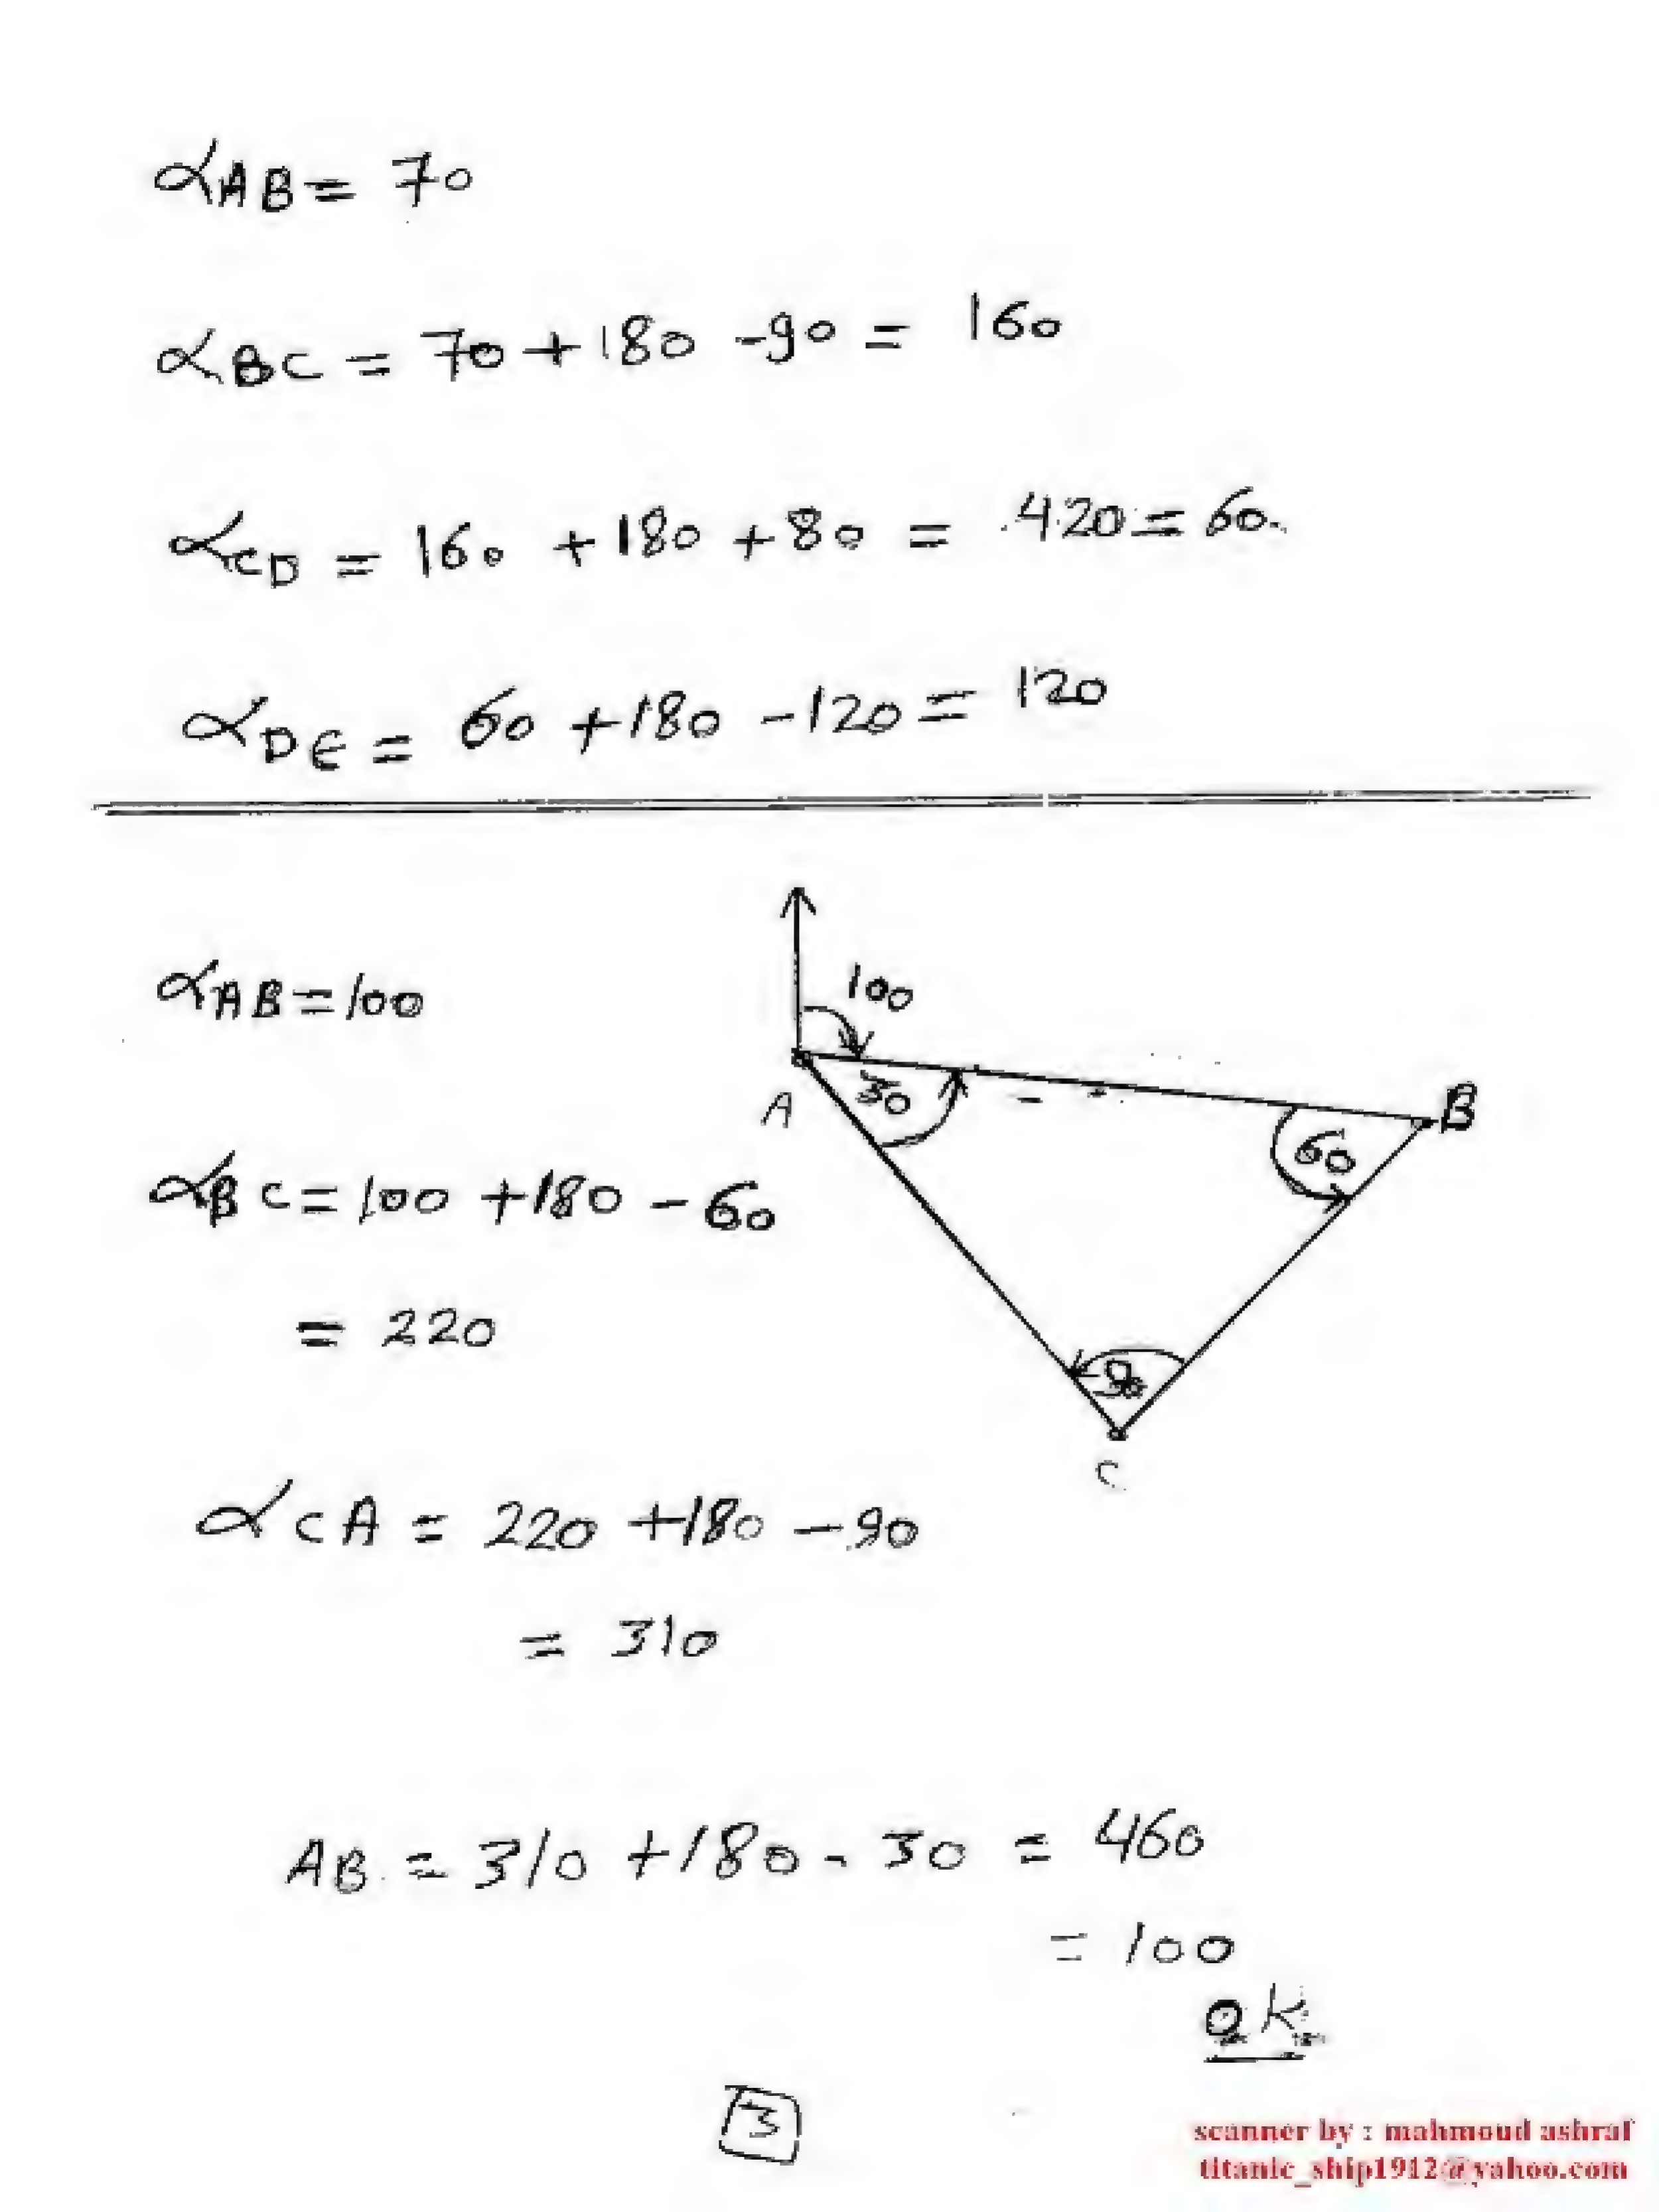 αAB = 70
αBC = 70 + 180 - 90 = 160
αCD = 160 + 180 + 80 = 420 = 60
αDE = 60 + 180 - 120 = 120
αAB = 100
100
A
30
B
60
αBC = 100 + 180 - 60
= 220
90
C
αCA = 220 + 180 - 90
= 310
AB = 310 + 180 - 30 = 460
= 100
ok
3
scanner by : mahmoud ashraf
titanic_ship1912@yahoo.com